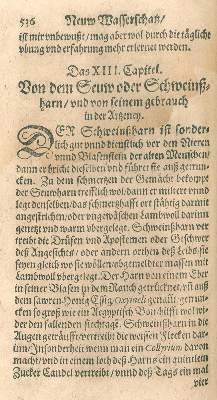 536 Neuw Wasserschatz/
ist mir vnbewußt/ mag aber wol durch die täglich
vbung vnd erfahrung mehr erlernet werden.
Das XIII. Capitel.
Von dem Seuw oder Schweinß-
harn/ vnd von seinem gebrauch
in der Artzeney.
DER Schweinßharn ist sonder-
lich gut vnnd dienstlich vor den Nieren
vnnd Blasenstein der alten Menschen/
dann er bricht dieselben vnd führet sie auß gerrun-
cken. Zu dem schmertzen der Gemächt bekompt
der Seuwharn trefflich wol/ dann er miltert vnnd
legt denselben/ das schmertzhafft ort stäthig darmit
angestrichen/ oder vngewäschen bambwoll darinn
genetzt vnnd warm vbergelegt. Schweinßharn ver
treibt die Drüsen vnd Apostemen oder Geschwer
deß Angesichts/ oder andern orthen deß Leibs sie
seyen gleich wo sie wollen/ dergestalt wie mit
bambwoll vbergelegt. Der Harn von einem Eber
in seiner Blasen zu dem Rauch getrücknet/ vñ auß
dem sawren Honig Essig Oxymeli genañt/ getrun-
cken so groß wie ein Aegyptisch Bon hilfft wol wi-
der den fallenden siechtagē. Schweinßharn in die
Augen geträufft/ vertreibt die weissen Flecken dar-
inn/ Insonderheit wenn man ein Collyrium davon
macht/ vnd in einem loth deß Harns ein quintlein
Zucker Candel vertreibt/ vnnd deß Tags ein mal
vier